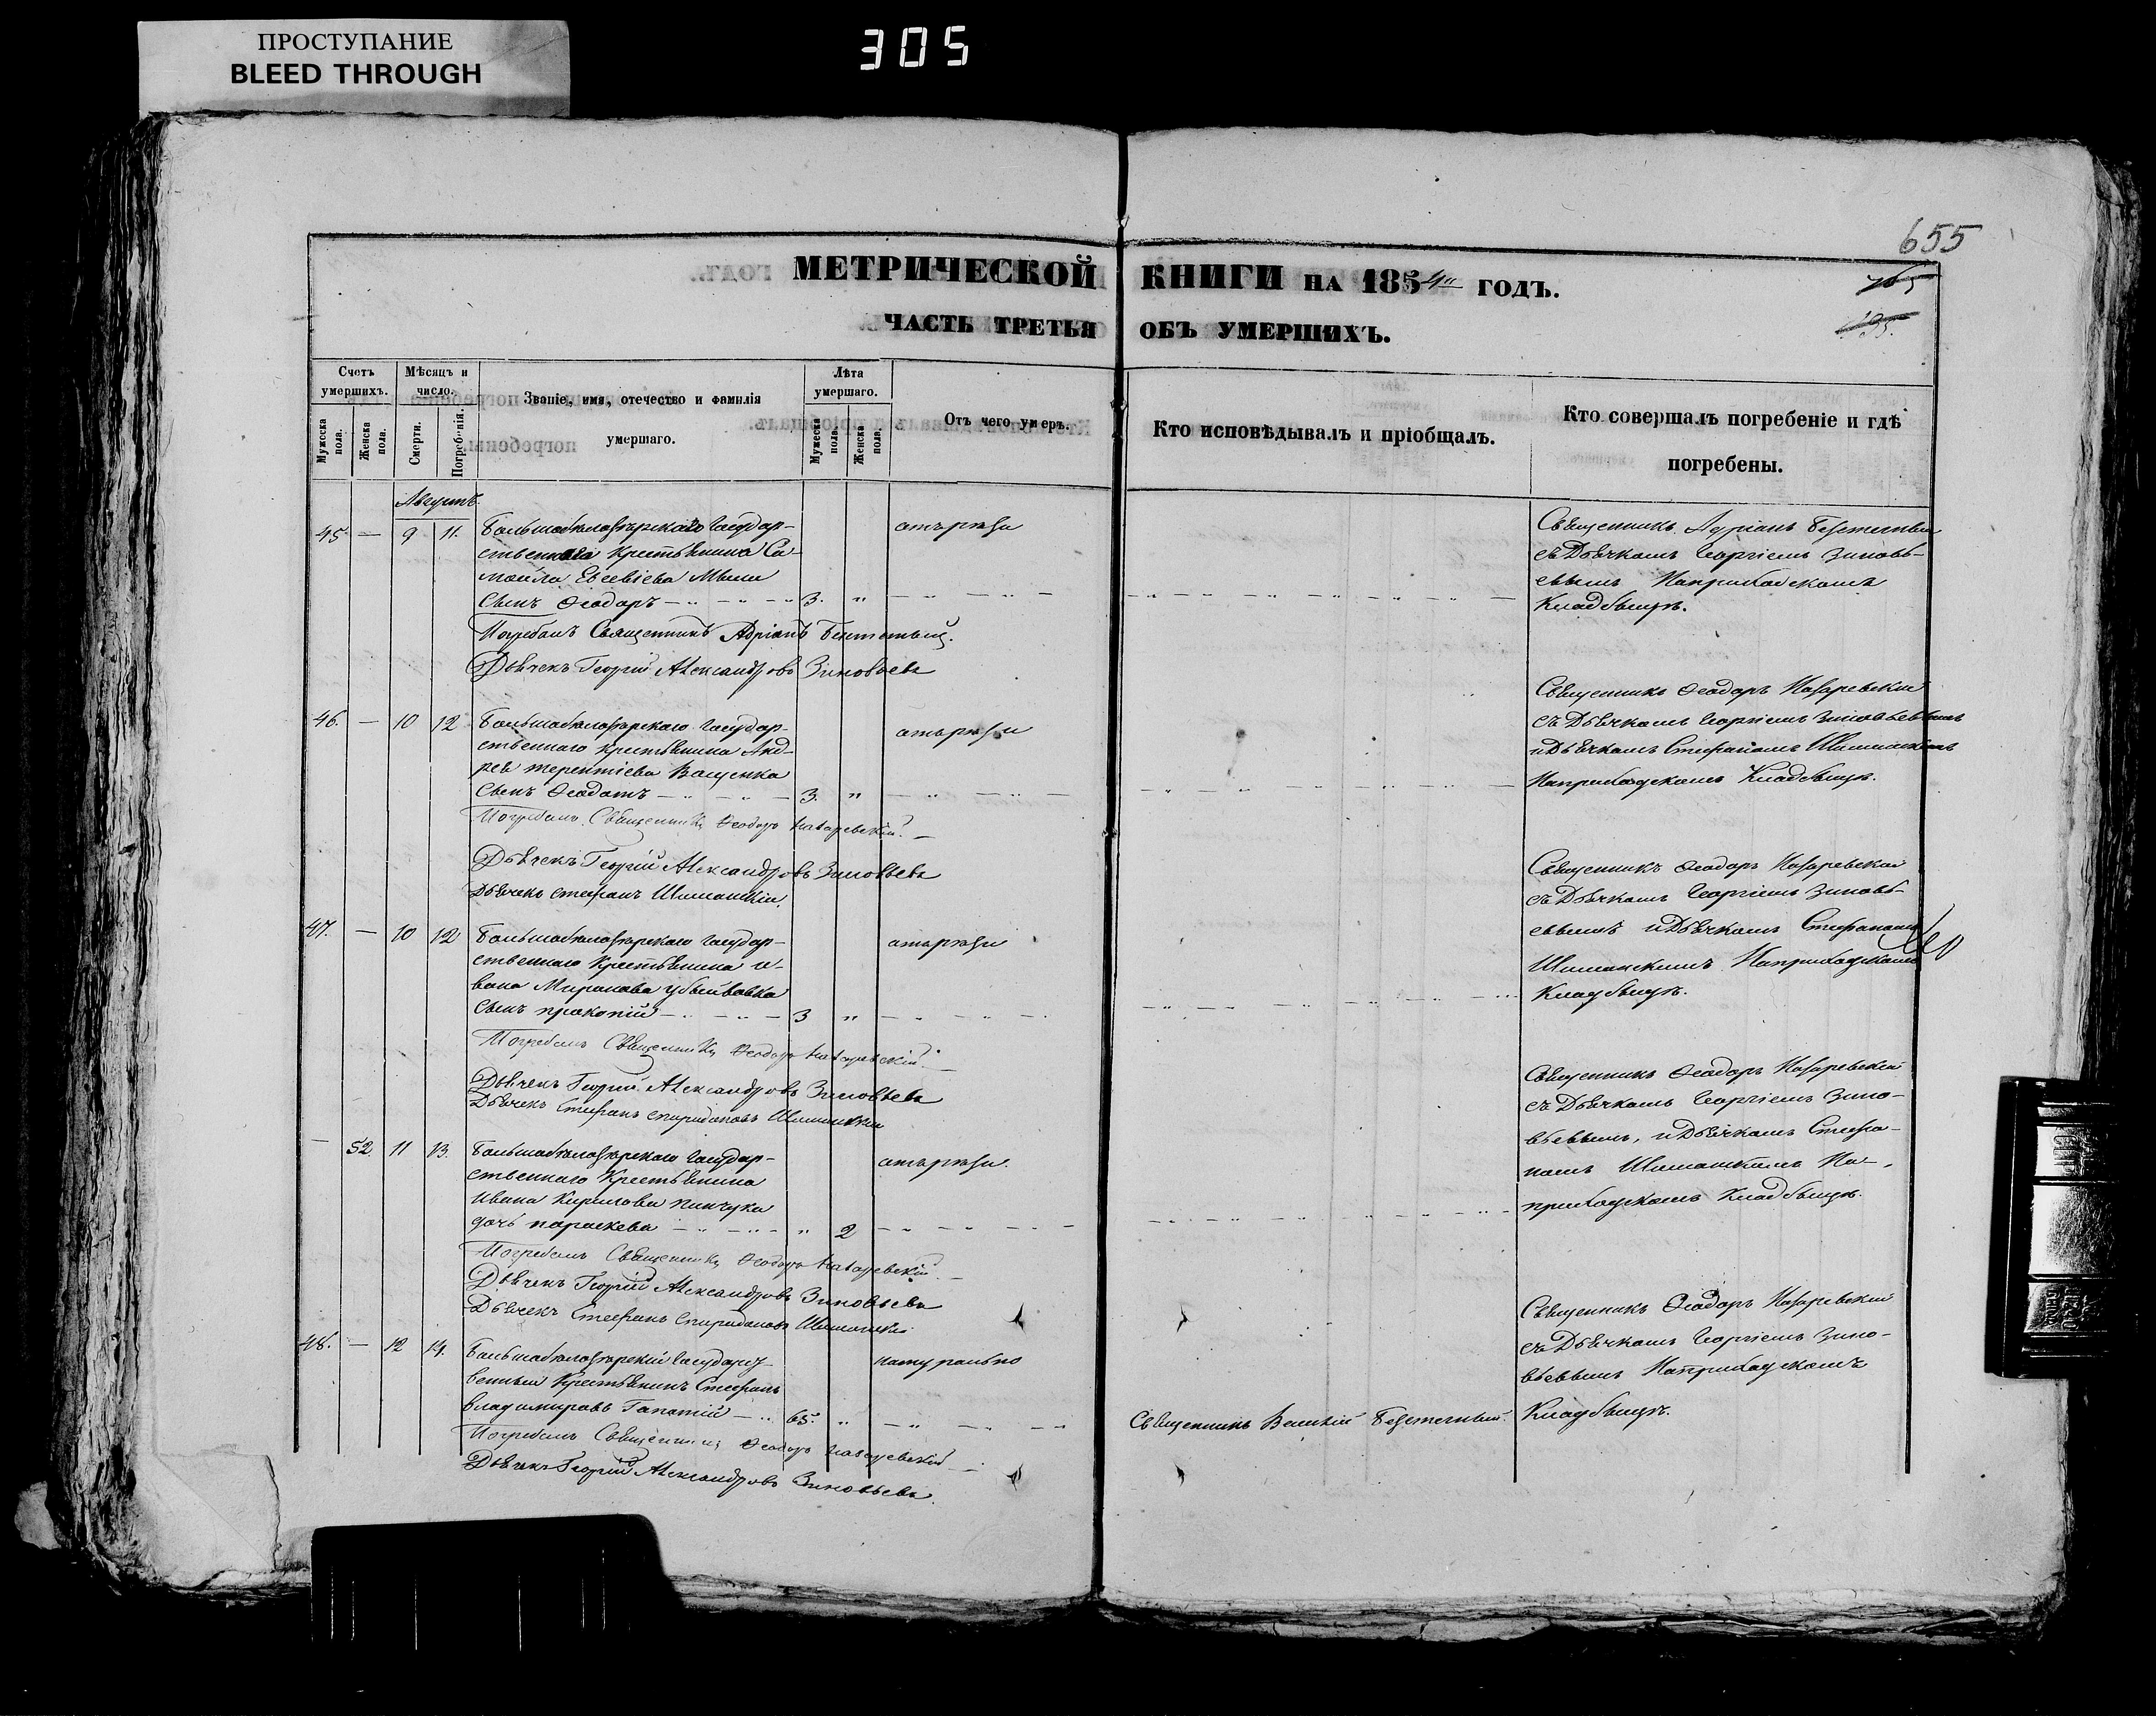 ПРОСТУПАНИЕ
BLEED THROUGH
305
655
МЕТРИЧЕСКОЙ КНИГИ НА 1854й ГОДЪ.
ЧАСТЬ ТРЕТЬЯ ОБЪ УМЕРШИХЪ.
Счетъ умершихъ.
Мужеска пола.
Женска пола.
Мѣсяцъ и число.
Смерти.
Погребенія.
Званіе, имя, отечество и фамилія умершаго.
Лѣта умершаго.
Мужеска пола.
Женска пола.
Отъ чего умеръ.
Кто исповѣдывалъ и пріобщалъ.
Кто совершалъ погребеніе и гдѣ погребены.
Августъ.
45. — 9 11. Большебѣлозѣрскаго Государ-
ственнаго крестьянина Са-
мойла Евсевіева
сынъ Ѳеодоръ 3. "
Погребалъ Священникъ Адріанъ
Дьячекъ Георгій Александровъ Зиновьевъ
Священникъ Адріанъ
съ Дьячкомъ Георгіемъ Зиновь-
евымъ Наприходскомъ
Кладбищѣ.
46. — 10 12 Большебѣлозѣрскаго Государ-
ственнаго крестьянина Анд-
рея терентіева Ващенка
сынъ Ѳеодотъ 3. "
Погребалъ Священникъ Ѳеодоръ Назаревскій.
Дьячекъ Георгій Александровъ Зиновьевъ
Дьячекъ Стефанъ
Священникъ Ѳеодоръ Назаревскій
съ Дьячкомъ Георгіемъ Зиновьевымъ
и Дьячкомъ Стефаномъ
Наприходскомъ Кладбищѣ.
47. — 10 12 Большебѣлозѣрскаго Государ-
ственнаго Крестьянина И-
вана Миронова Убийвовка
сынъ прокопій 3 "
Погребалъ Священникъ Ѳеодоръ Назаревскій.
Дьячекъ Георгій Александровъ Зиновьевъ
Дьячекъ Стефанъ спиридоновъ
Священникъ Ѳеодоръ Назаревскій
съ Дьячкомъ Георгіемъ Зиновь-
евымъ и Дьячкомъ Стефаномъ
Наприходскомъ
Кладбищѣ.
— 52. 11 13. Большебѣлозѣрскаго Государ-
ственнаго Крестьянина
Ивана Кирилова пинчука
дочь параскева " 2
Погребалъ Священникъ Ѳеодоръ Назаревскій.
Дьячекъ Георгій Александровъ Зиновьевъ
Дьячекъ Стефанъ Спиридоновъ
Священникъ Ѳеодоръ Назаревскій
съ Дьячкомъ Георгіемъ Зино-
вьевымъ, и Дьячкомъ Стефа-
номъ На-
приходскомъ Кладбищѣ.
48. — 12 14. Большебѣлозѣрскій Государст-
венный Крестьянинъ Стефанъ
владимировъ 65. "
натурально
Погребалъ Священникъ Ѳеодоръ Назаревскій
Дьячекъ Георгій Александровъ Зиновьевъ.
Священникъ Василій
Священникъ Ѳеодоръ Назаревскій
съ Дьячкомъ Георгіемъ Зино-
вьевымъ Наприходскомъ
Кладбищѣ.